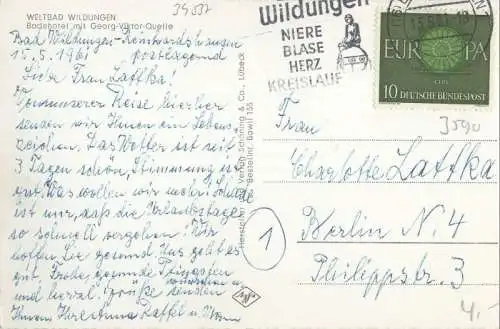 39532
WELTBAD WILDUNGEN
Badehotel mit Georg-Viktor-Quelle
Bad Wildungen-Reinhardshausen
15.5.1961 postlagernd
Liebe Frau Lattka!
Von unserer Reise hierher
senden wir Ihnen ein Lebens-
zeichen. Das Wetter ist seit
3 Tagen schön, Stimmung ist
gut. Was wollen wir mehr! Schade
ist nur, daß die Urlaubstage
so schnell vergehen! Wir
hoffen Sie gesund. Uns geht es
gut. Frohe, gesunde Pfingsten
wünschen
und herzl. Grüße senden
Ihnen Ihre Anna
Hersteller und Verlag Schöning & Co., Lübeck
Bestellnr. Bawil 155
Wildungen
NIERE
BLASE
HERZ
KREISLAUF
15.5.61
EUROPA
CEPT
10 DEUTSCHE BUNDESPOST
Frau
Charlotte Lattka
Berlin N. 4
Philippstr. 3
1
4.-